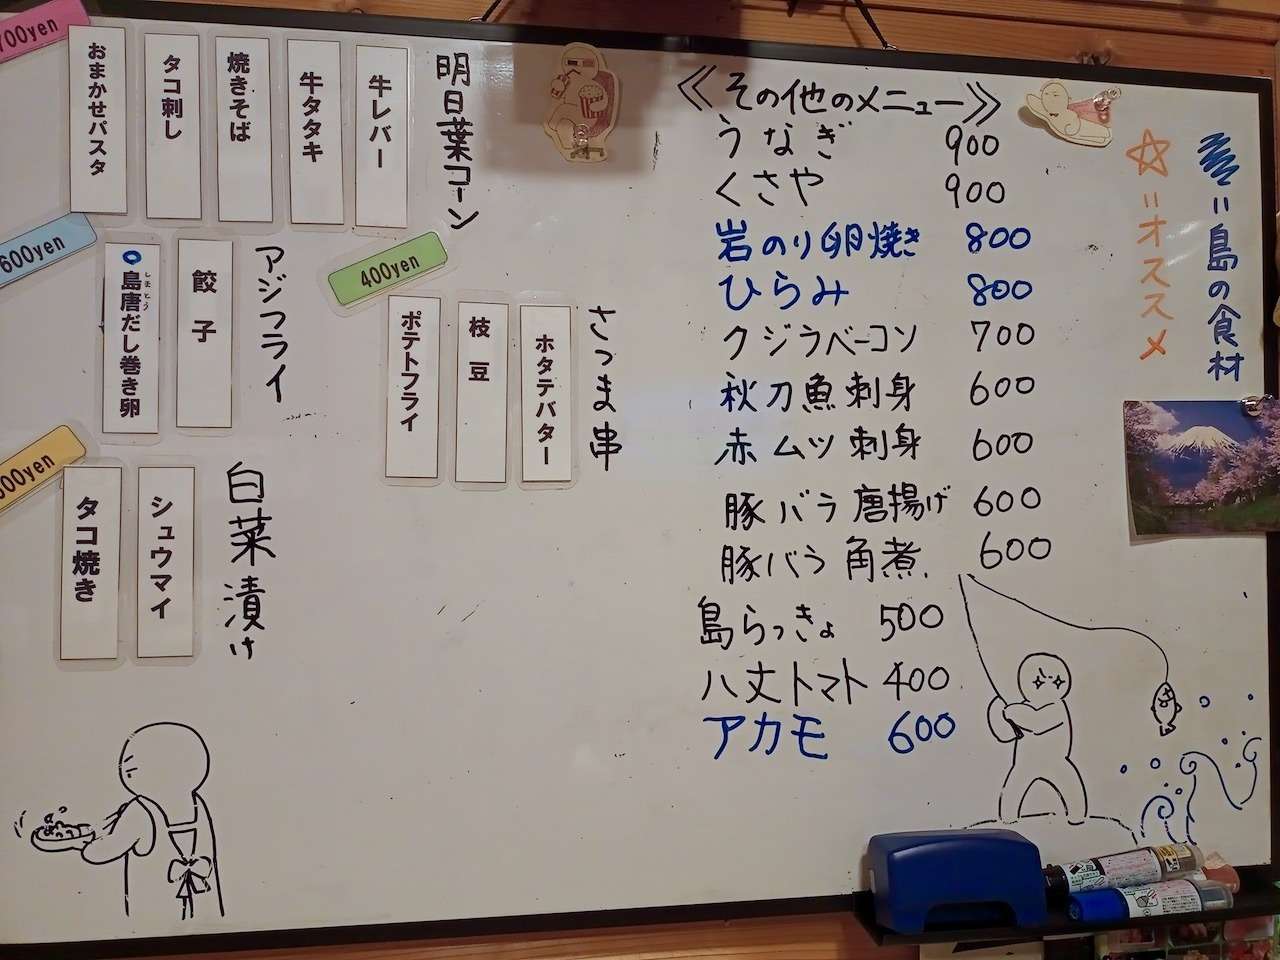 700yen
明日葉コーン
牛レバー
牛タタキ
焼きそば
タコ刺し
おまかせパスタ
600yen
アジフライ
餃子
島唐だし巻き卵
しまとう
400yen
さつま串
ホタテバター
枝豆
ポテトフライ
00yen
白菜漬け
シュウマイ
タコ焼き
≪その他のメニュー≫
うなぎ 900
くさや 900
岩のり卵焼き 800
ひらみ 800
クジラベーコン 700
秋刀魚刺身 600
赤ムツ刺身 600
豚バラ唐揚げ 600
豚バラ角煮 600
島らっきょ 500
八丈トマト 400
アカモ 600
=島の食材
☆=オススメ